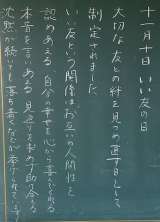 十一月十日 いい友の日
大切な友との絆を見つめ直す日として
制定されました
いい友という関係はお互いの人間性を
認めあえる 自分の幸せを心から喜んでくれる
本音を言いあえる 見返りを求めず助け合える
沈黙が続いても落ち着くなどが挙げられています